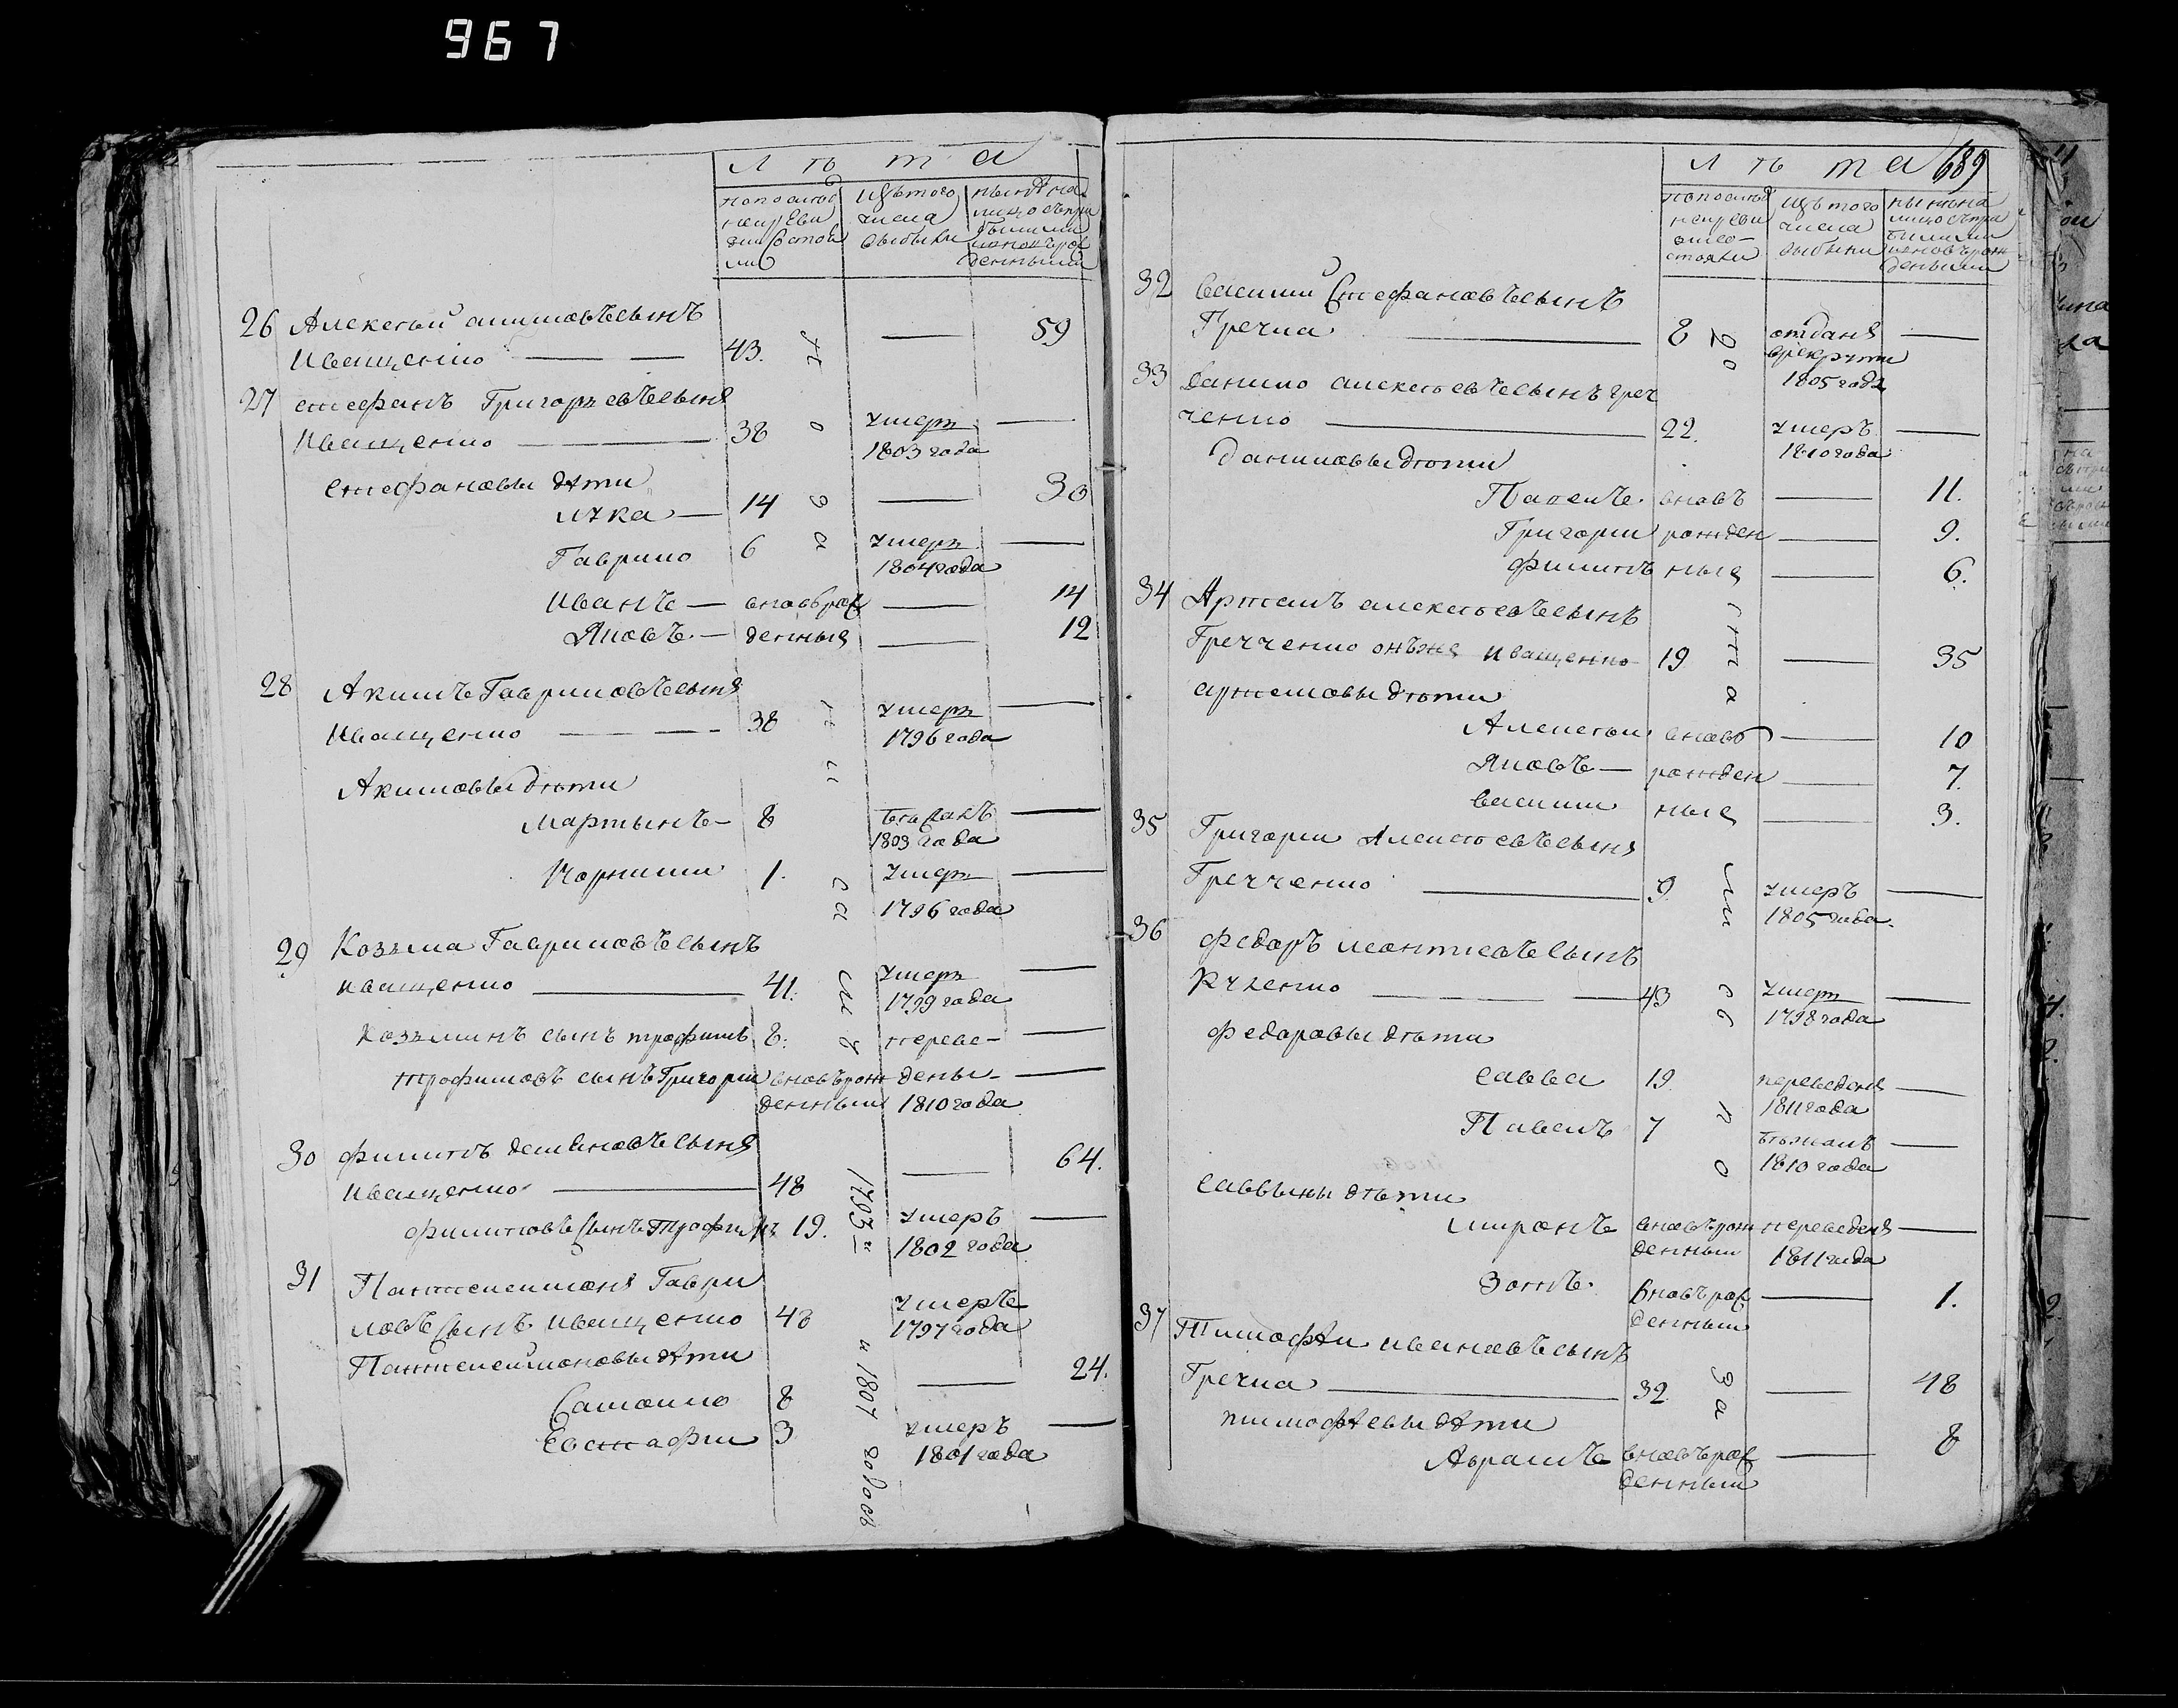 967
Лѣта
по последней ревизии состояли
изъ того числа выбыли
ныне на лицо съ прибылыми и вновь рожденными
26 Алексѣй Климовъ сынъ
Иващенко 43. — 59
27 Стефанъ Григорьевъ сынъ
Иващенко 38 умеръ 1803 года —
Стефановы дѣти
Лука — 14 — 30
Гаврило 6 умеръ 1804 года —
Иванъ — вновь рож — 14
Яковъ — денныя — 12
28 Акимъ Гавриловъ сынъ
Иващенко 38 умеръ 1796 года —
Акимовы дѣти
Мартынъ — 8 1803 года —
Корнили 1. умеръ 1796 года —
29 Козьма Гавриловъ сынъ
Иващенко 41. умеръ 1799 года —
Козьминъ сынъ трофимъ 8. переве- —
трофимовъ сынъ Григори вновь рожденныи дены- 1810 года —
30 филипъ Семеновъ сынъ
Иващенко 48 — 64.
филиповъ сынъ трофимъ 19. умеръ 1802 года —
31 Пантелеимонъ Гаври
ловъ сынъ Иващенко 43 умеръ 1797 года
Пантелеимоновы дѣти
Самоило 8 — 24.
Евстафи 3 умеръ 1801 года —
1793 и 1807 годовъ
689
Лѣта
по последней ревизии состояли
изъ того числа выбыли
ныне на лицо съ прибылыми и вновь рожденными
32 Василий Стефановъ сынъ
Гречка — 8 отданъ в рекруты 1805 года —
33 Данило алексѣевъ сынъ греч
ченко — 22. умеръ 1810 года —
Даниловы дѣти
Павелъ вновь — 11.
Григори рожден — 9.
филипъ ныя — 6.
34 Артемъ алексѣевъ сынъ
Гречченко онъже Иващенко 19 — 35
артемовы дѣти
Алексеи вновь — 10
Яковъ — рожден — 7.
Васили ныя — 3.
35 Григори Алексѣевъ сынъ
Гречченко — 9. умеръ 1805 года —
36 федоръ леонтиевъ сынъ
Куленко — 43 умеръ 1798 года —
федоровы дѣти
Савва 19 переведенъ 1811 года —
Павелъ 7 бѣжалъ 1810 года —
Саввины дѣти
миронъ вновь рожденныи переведенъ 1811 года —
Зотъ вновь рожденныи — 1.
37 Тимофѣи ивановъ сынъ
Гречка — 32. — 48
тимофѣевы дѣти
Абрамъ вновь рожденныи — 8